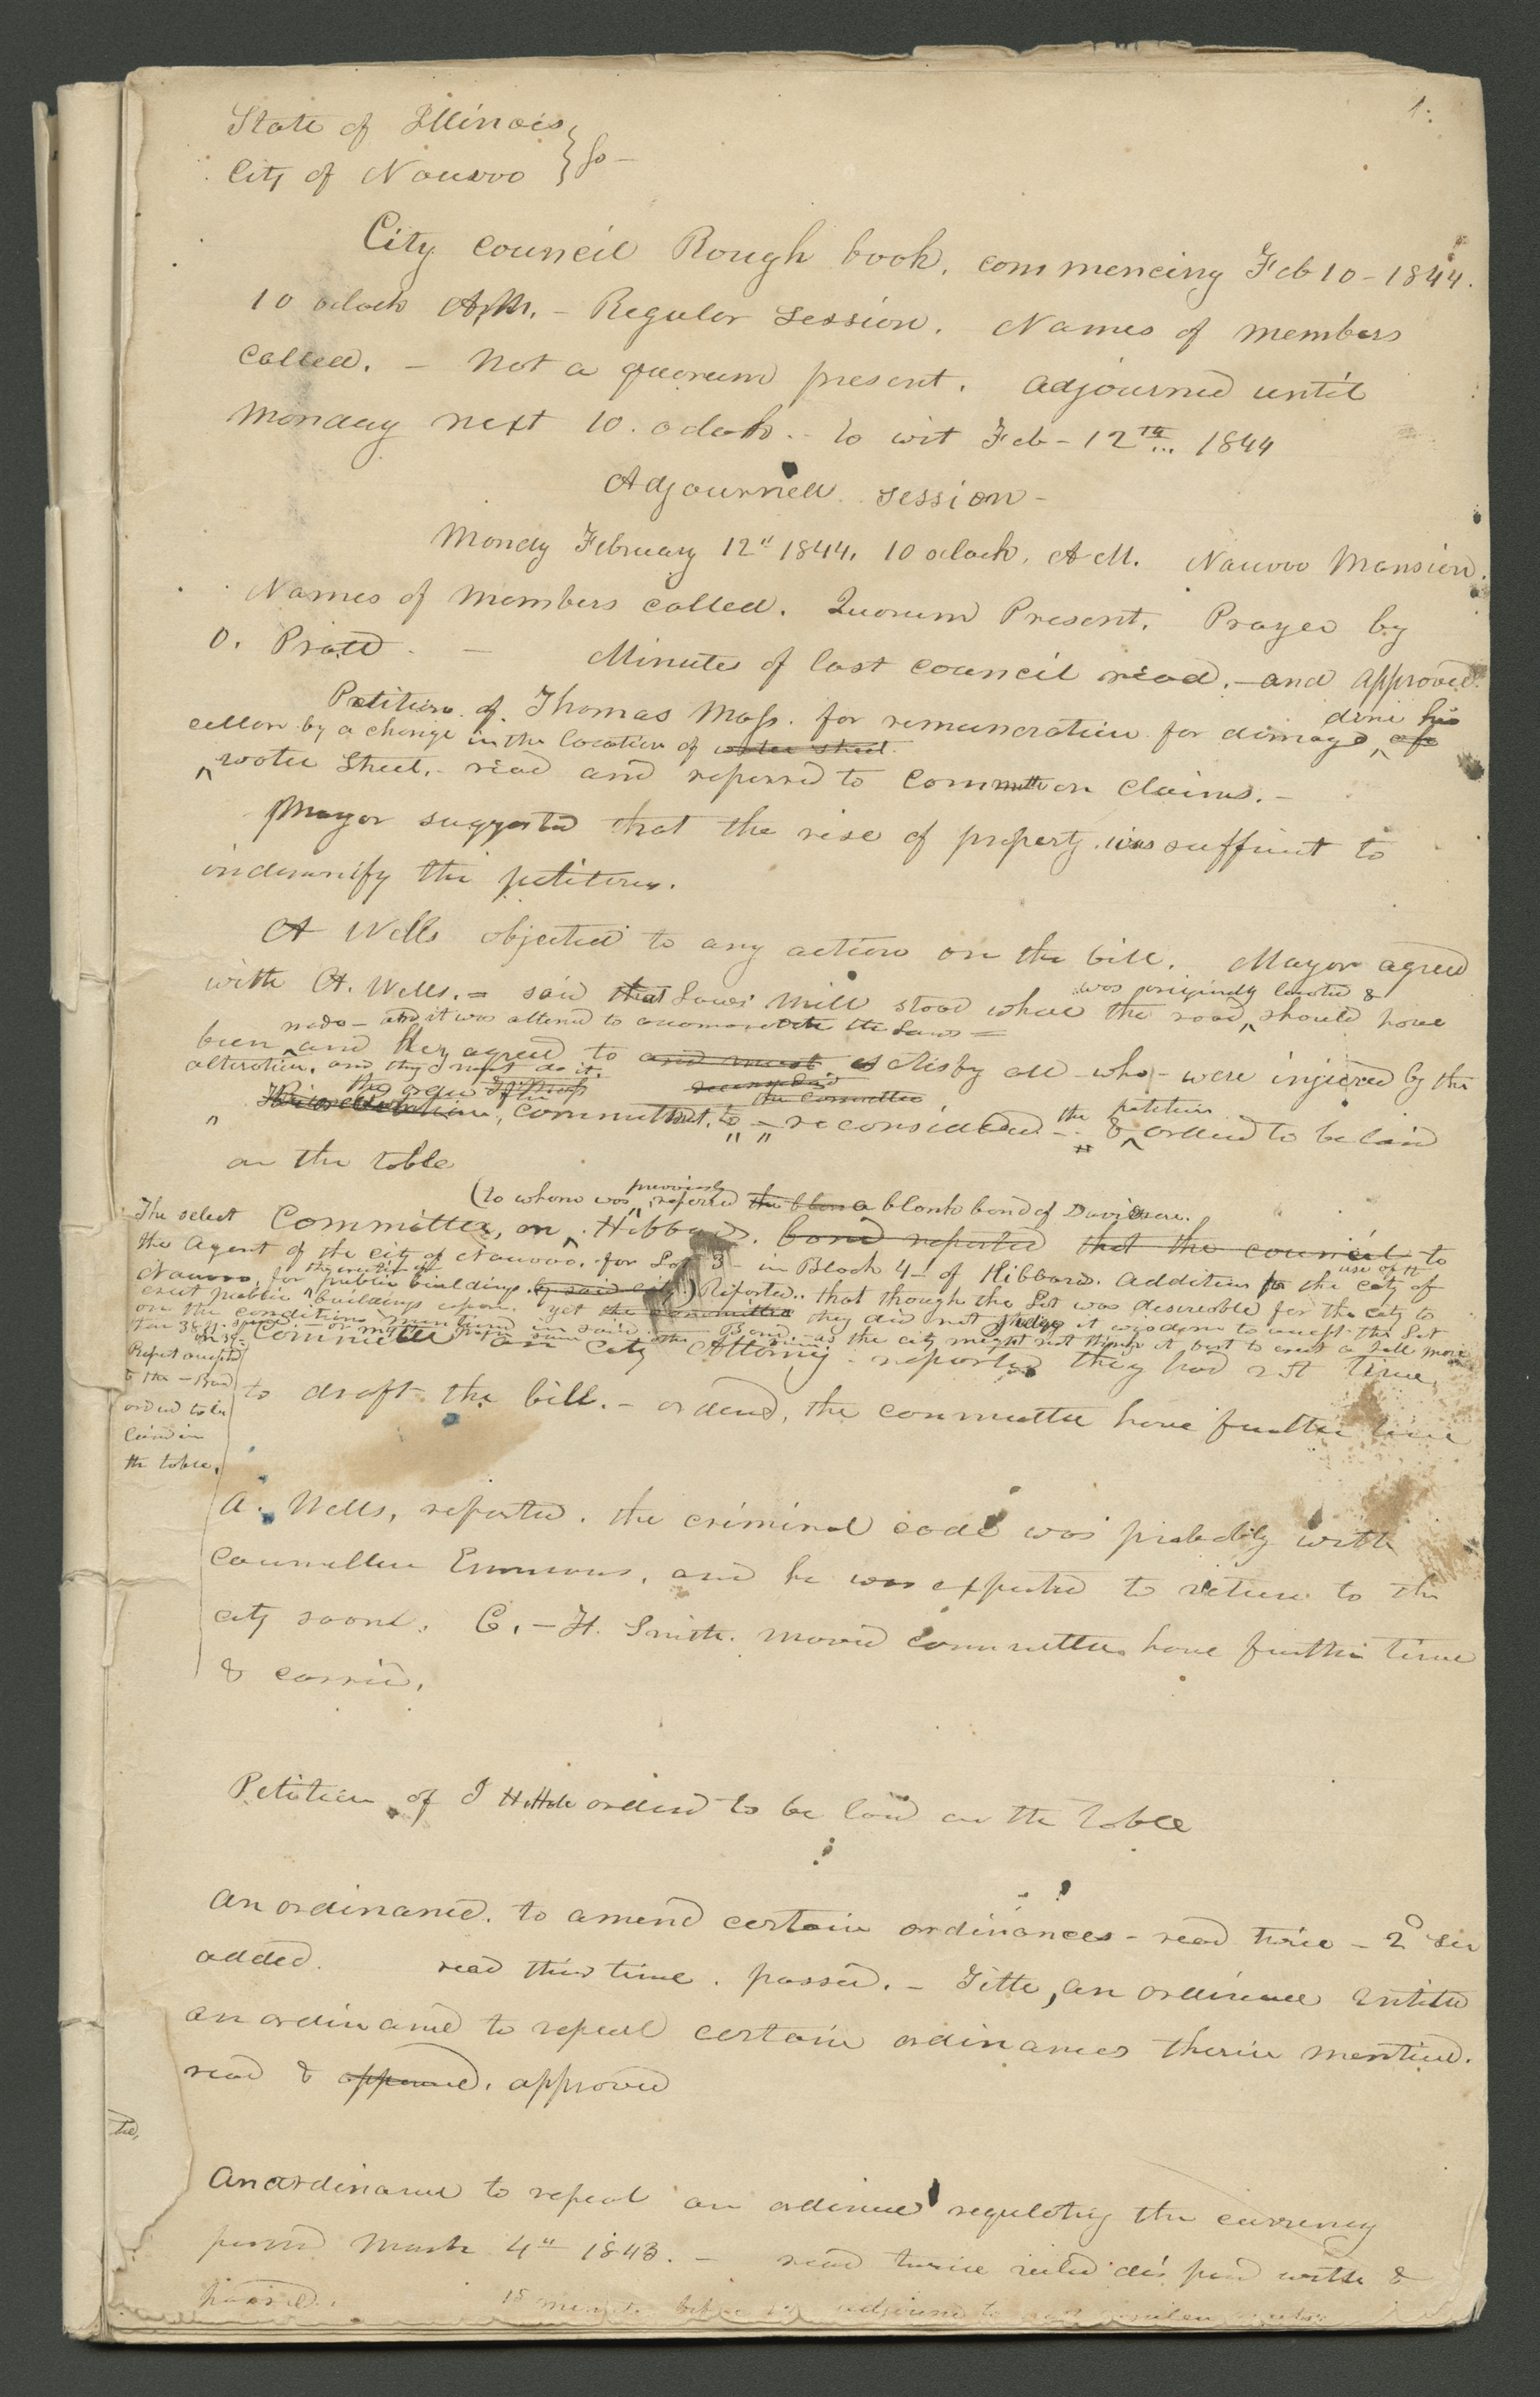 1.
State of Illinois,
City of Nauvoo } ss —
City council Rough book, commencing Feb 10 - 1844.
10 oclock A.M. - Regular Session. Names of members
called. - Not a quorum present. adjourned until
Monday next 10. oclock. - to wit Feb - 12th 1844
Adjourned session -
Mondy February 12" 1844. 10 oclock, A M. Nauvoo Mansion.
Names of members called. Quorum Present. Prayer by
O. Pratt. — Minutes of last council read, - and approved.
Petition of Thomas Moss. for remuneration for damage done his
cellar by a change in the location of water street.
water Street. - read and referred to committee on claims. -
Mayor suggested that the rise of property was suffient to
indemnify the petitioner.
A Wells objected to any action on the bill. Mayor agreed
was originally located &
with A. Wells. = said that Laws' Mill stood where the road should have
made - and it was altered to accomodate the Laws =
been and they agreed to and must satisfy all - who - were injured by the
alteration, and they must do it.
the order of the
the committee
committment, to - reconsidered - the petition & ordered to be laid
on the table
(to whom was previously referred a blank bond of Davidson.
The select Committee, on Hibbard. bond reported that the council to
the Agent of the city of Nauvoo, for Lot 3 - in Block 4 - of Hibbards. Addition to the city of
Nauvoo, for the erection of public buildings by said city) Reported.. that though the Lot was desireable for the use of the city to
erect public buildings upon. yet the committee they did not judge it wisdom to accept the Lot
on the conditions mentioned in said Bond. - as the city might not think it best to erect a Hall more
Report accepted
& the - Bond
ordered to be
laid on
the table.
Committee on City Attorney - reported they had not time
to draft the bill. - ordered, the committee have further time
A. Wells, reported. the criminal code was probably with
Councillor Emmons, and he was expected to return to the
city soon. C. - H. Smith. moved committee have further time
& carried.
Petition of J Hatch ordered to be laid on the table
An ordinance. to amend certain ordinances - read twice - 2d sec
added. read third time. passed. - Title, an ordinance entitled
an ordinance to repeal certain ordinances therein mentioned.
read & approved. approved
An ordinance to repeal an ordinance regulating the currency
passed March 4" 1843. - read twice rules dispensed with &
passed. 15 minutes before adjourned to next regular